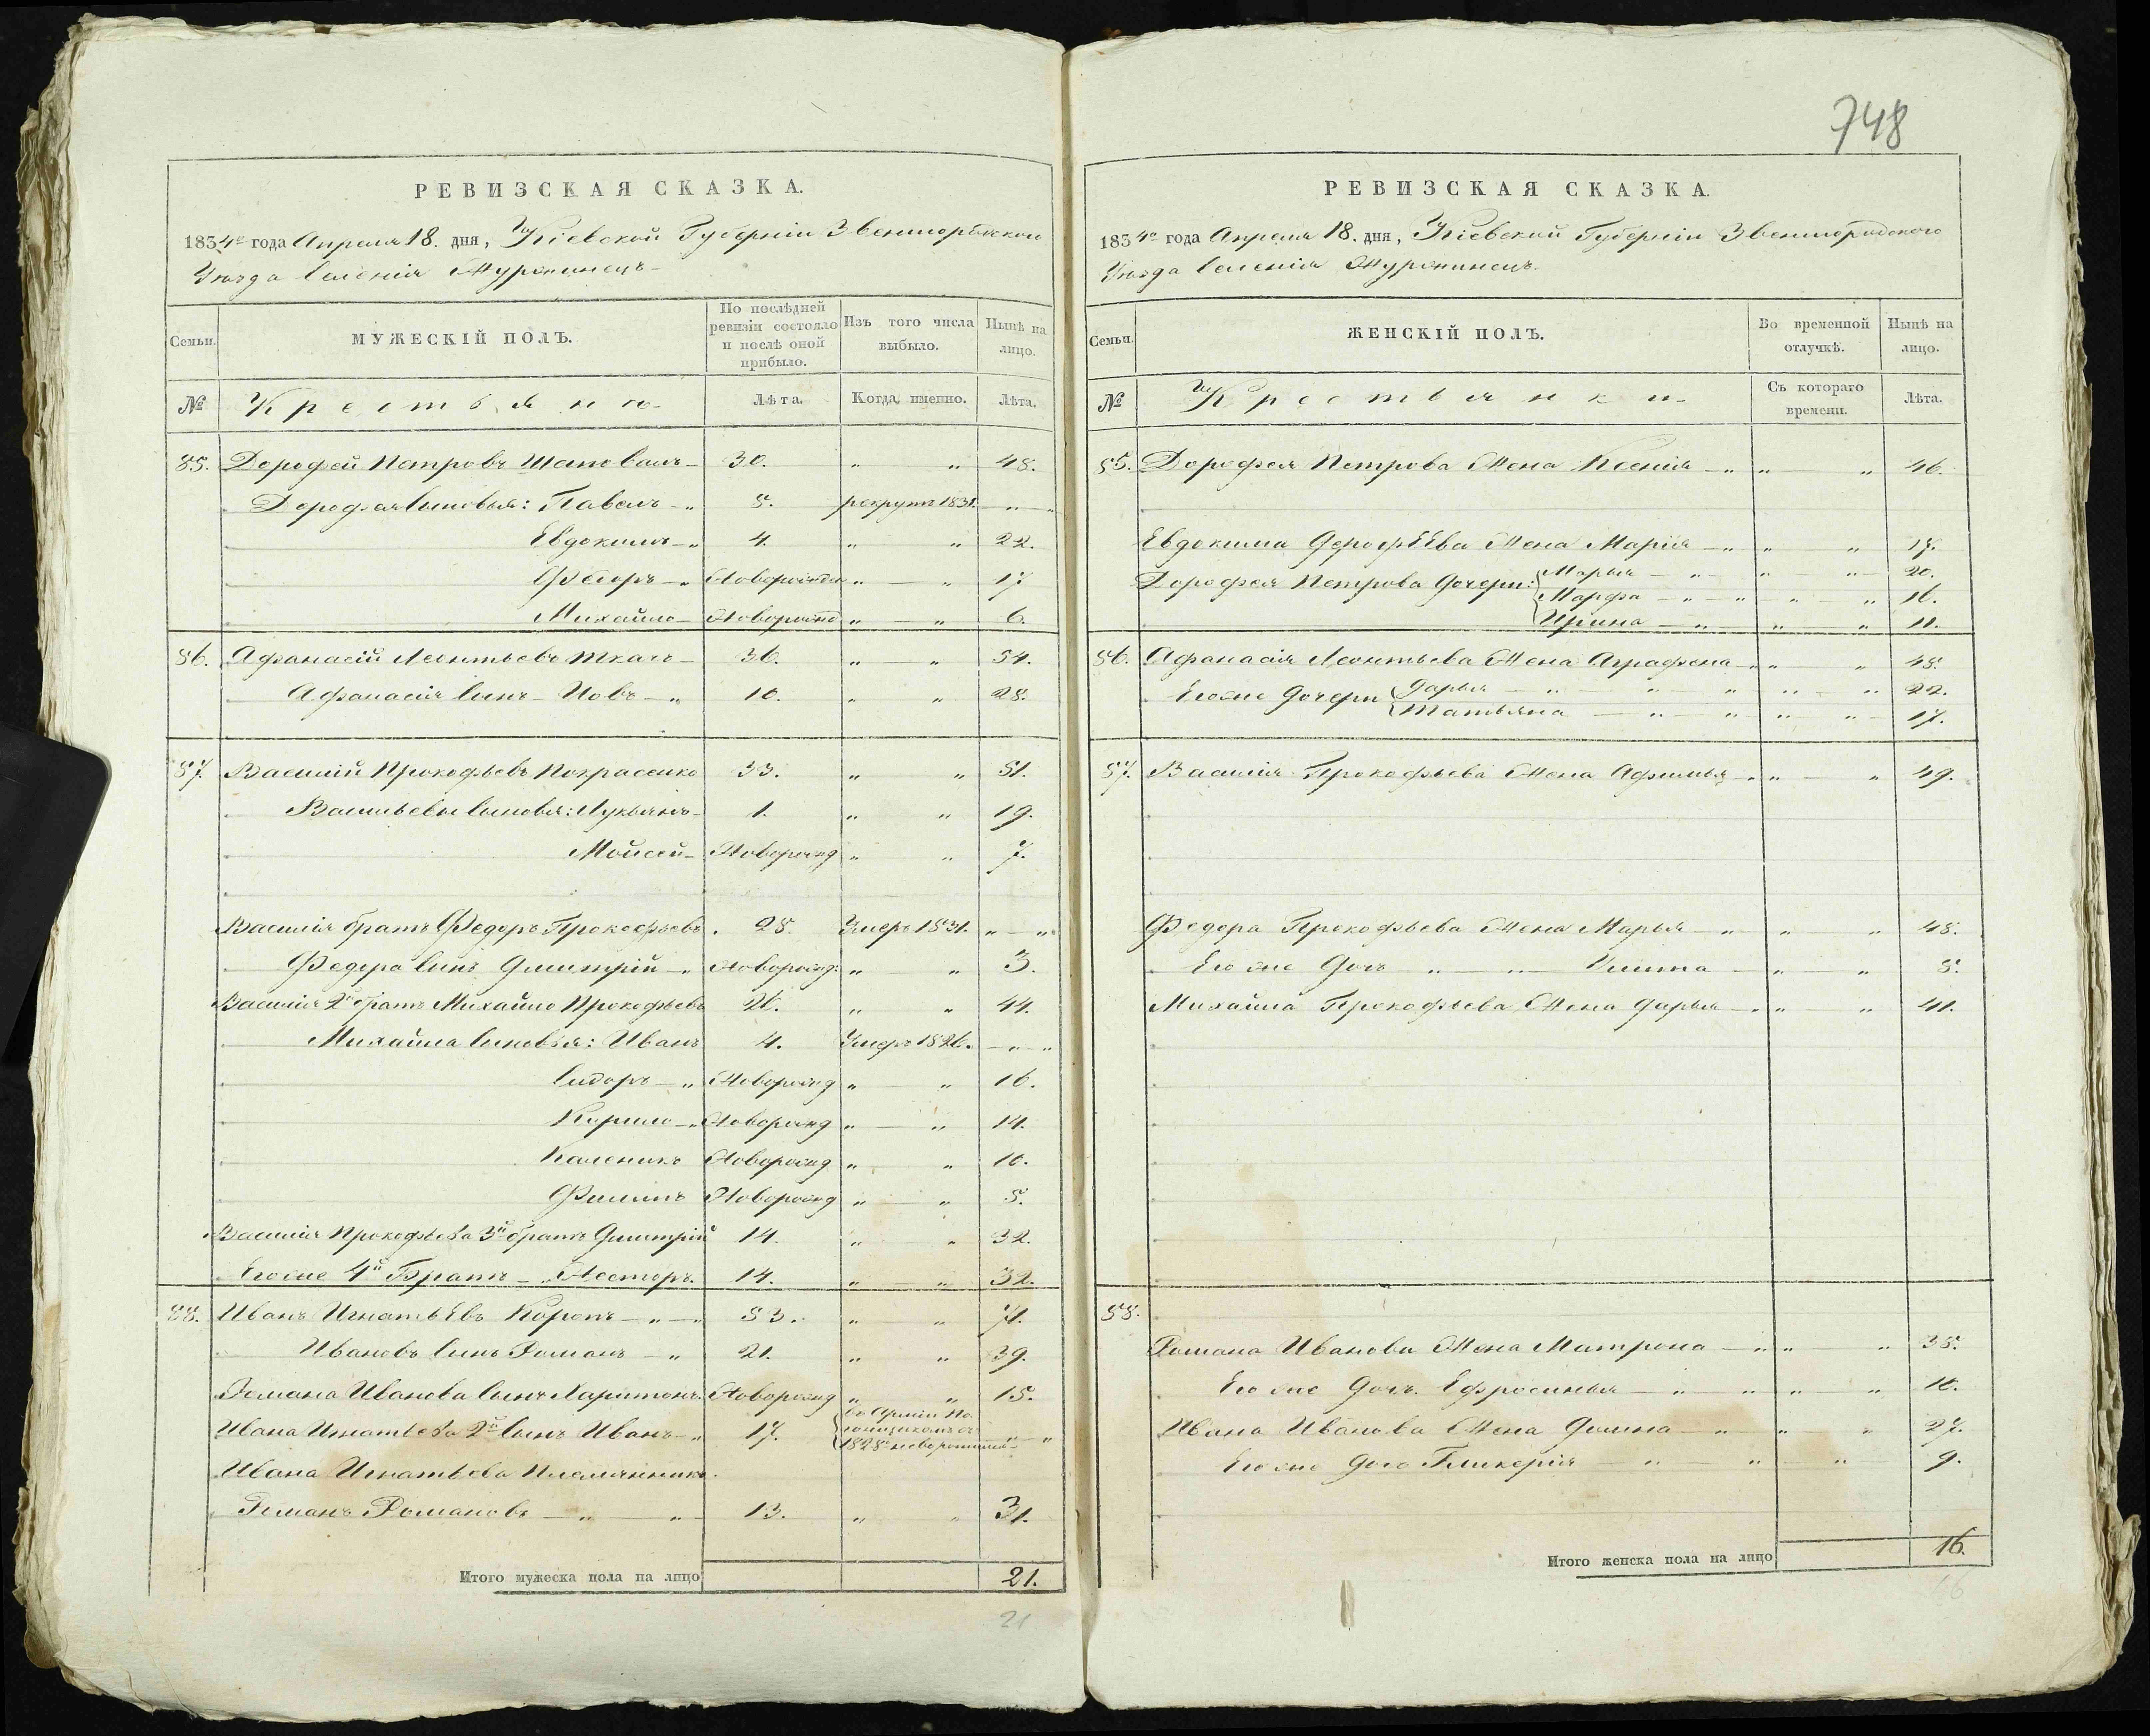 РЕВИЗСКАЯ СКАЗКА.
1834го года Апреля 18. дня, Кіевской Губерніи Звенигородского
Уезда Селенія Журжинецъ
Семьи.
МУЖЕСКІЙ ПОЛЪ.
По послѣдней ревизіи состояло и послѣ оной прибыло.
Изъ того числа выбыло.
Нынѣ на лицо.
№ Крестьяне Лѣта. Когда именно. Лѣта.
85. Дорофей Петровъ Шаповалъ 30. „ „ 48.
Дорофея Сыновья: Павелъ „ 8. рекрутъ 1831. „ „
Евдокимъ „ 4. „ „ 22.
Федоръ „ Новорожден „ „ 17
Михайло Новорожд „ „ 6.
86. Афанасій Леонтьевъ Ткачъ 36. „ „ 54.
Афанасія Сынъ Іовъ „ 10. „ „ 28.
87. Василій Прокофьевъ Покрасенко 33. „ „ 51.
Васильевы Сыновья: Лукьянъ 1. „ „ 19.
Мойсей Новорожд „ „ 7.
Василія братъ Федоръ Прокофьевъ. 28. Умеръ 1831. „ „
Федора Сынъ Дмитрій „ Новорожд: „ „ 3.
Василія 2й братъ Михайло Прокофьевъ 26. „ „ 44.
Михайла Сыновья: Иванъ 4. Умеръ 1826. „ „
Сидоръ „ Новорожд „ „ 16.
Кирило „ Новорожд „ „ 14.
Каленикъ Новорожд „ „ 10.
Филипъ Новорожд „ „ 5.
Василія Прокофьева 3й братъ Дмитрій 14. „ „ 32.
Его же 4й Братъ „ Несторъ. 14. „ „ 32.
88. Иванъ Игнатьевъ Коропъ „ „ 53. „ „ 71.
Ивановъ Сынъ Романъ „ 21. „ „ 39.
Романа Иванова Сынъ Харитонъ. Новорожд „ „ 15.
Ивана Игнатьева 2й Сынъ Иванъ „ 17. во Арміи По гонщикомъ съ 1828го неворотился „ „
Ивана Игнатьева Племянникъ.
Романъ Романовъ „ „ 13. „ „ 31.
Итого мужеска пола на лицо 21.
21
748
РЕВИЗСКАЯ СКАЗКА.
1834го года Апреля 18. дня, Кіевской Губерніи Звенигородского
Уезда Селенія Журжинецъ.
Семьи.
ЖЕНСКІЙ ПОЛЪ.
Во временной отлучкѣ.
Нынѣ на лицо.
№ Крестьянки Съ котораго времени. Лѣта.
85. Дорофея Петрова Жена Ксенія „ „ „ 46.
Евдокима Дорофѣѣва Жена Марія „ „ „ 18.
Дорофея Петрова Дочери: Марья „ „ „ 20.
Марфа „ „ „ „ 16.
Ирина „ „ „ 11.
86. Афанасія Леонтьева Жена Аграфена „ „ „ 48.
Его же Дочери Дарья „ „ „ „ „ 22.
Татьяна „ „ „ „ 17.
87. Василія Прокофьева Жена Афимья „ „ „ 49.
Федора Прокофьева Жена Марья „ „ „ 48.
Его же Дочь „ „ Улита „ „ 8.
Михайла Прокофьева Жена Дарья „ „ „ 41.
88.
Романа Иванова Жена Матрона „ „ „ 38.
Его же Дочь. Ефросинья „ „ „ „ 10.
Ивана Иванова Жена Домна „ „ „ 27.
Его же Дочь Гликерія „ „ „ 9.
Итого женска пола на лицо 16.
16